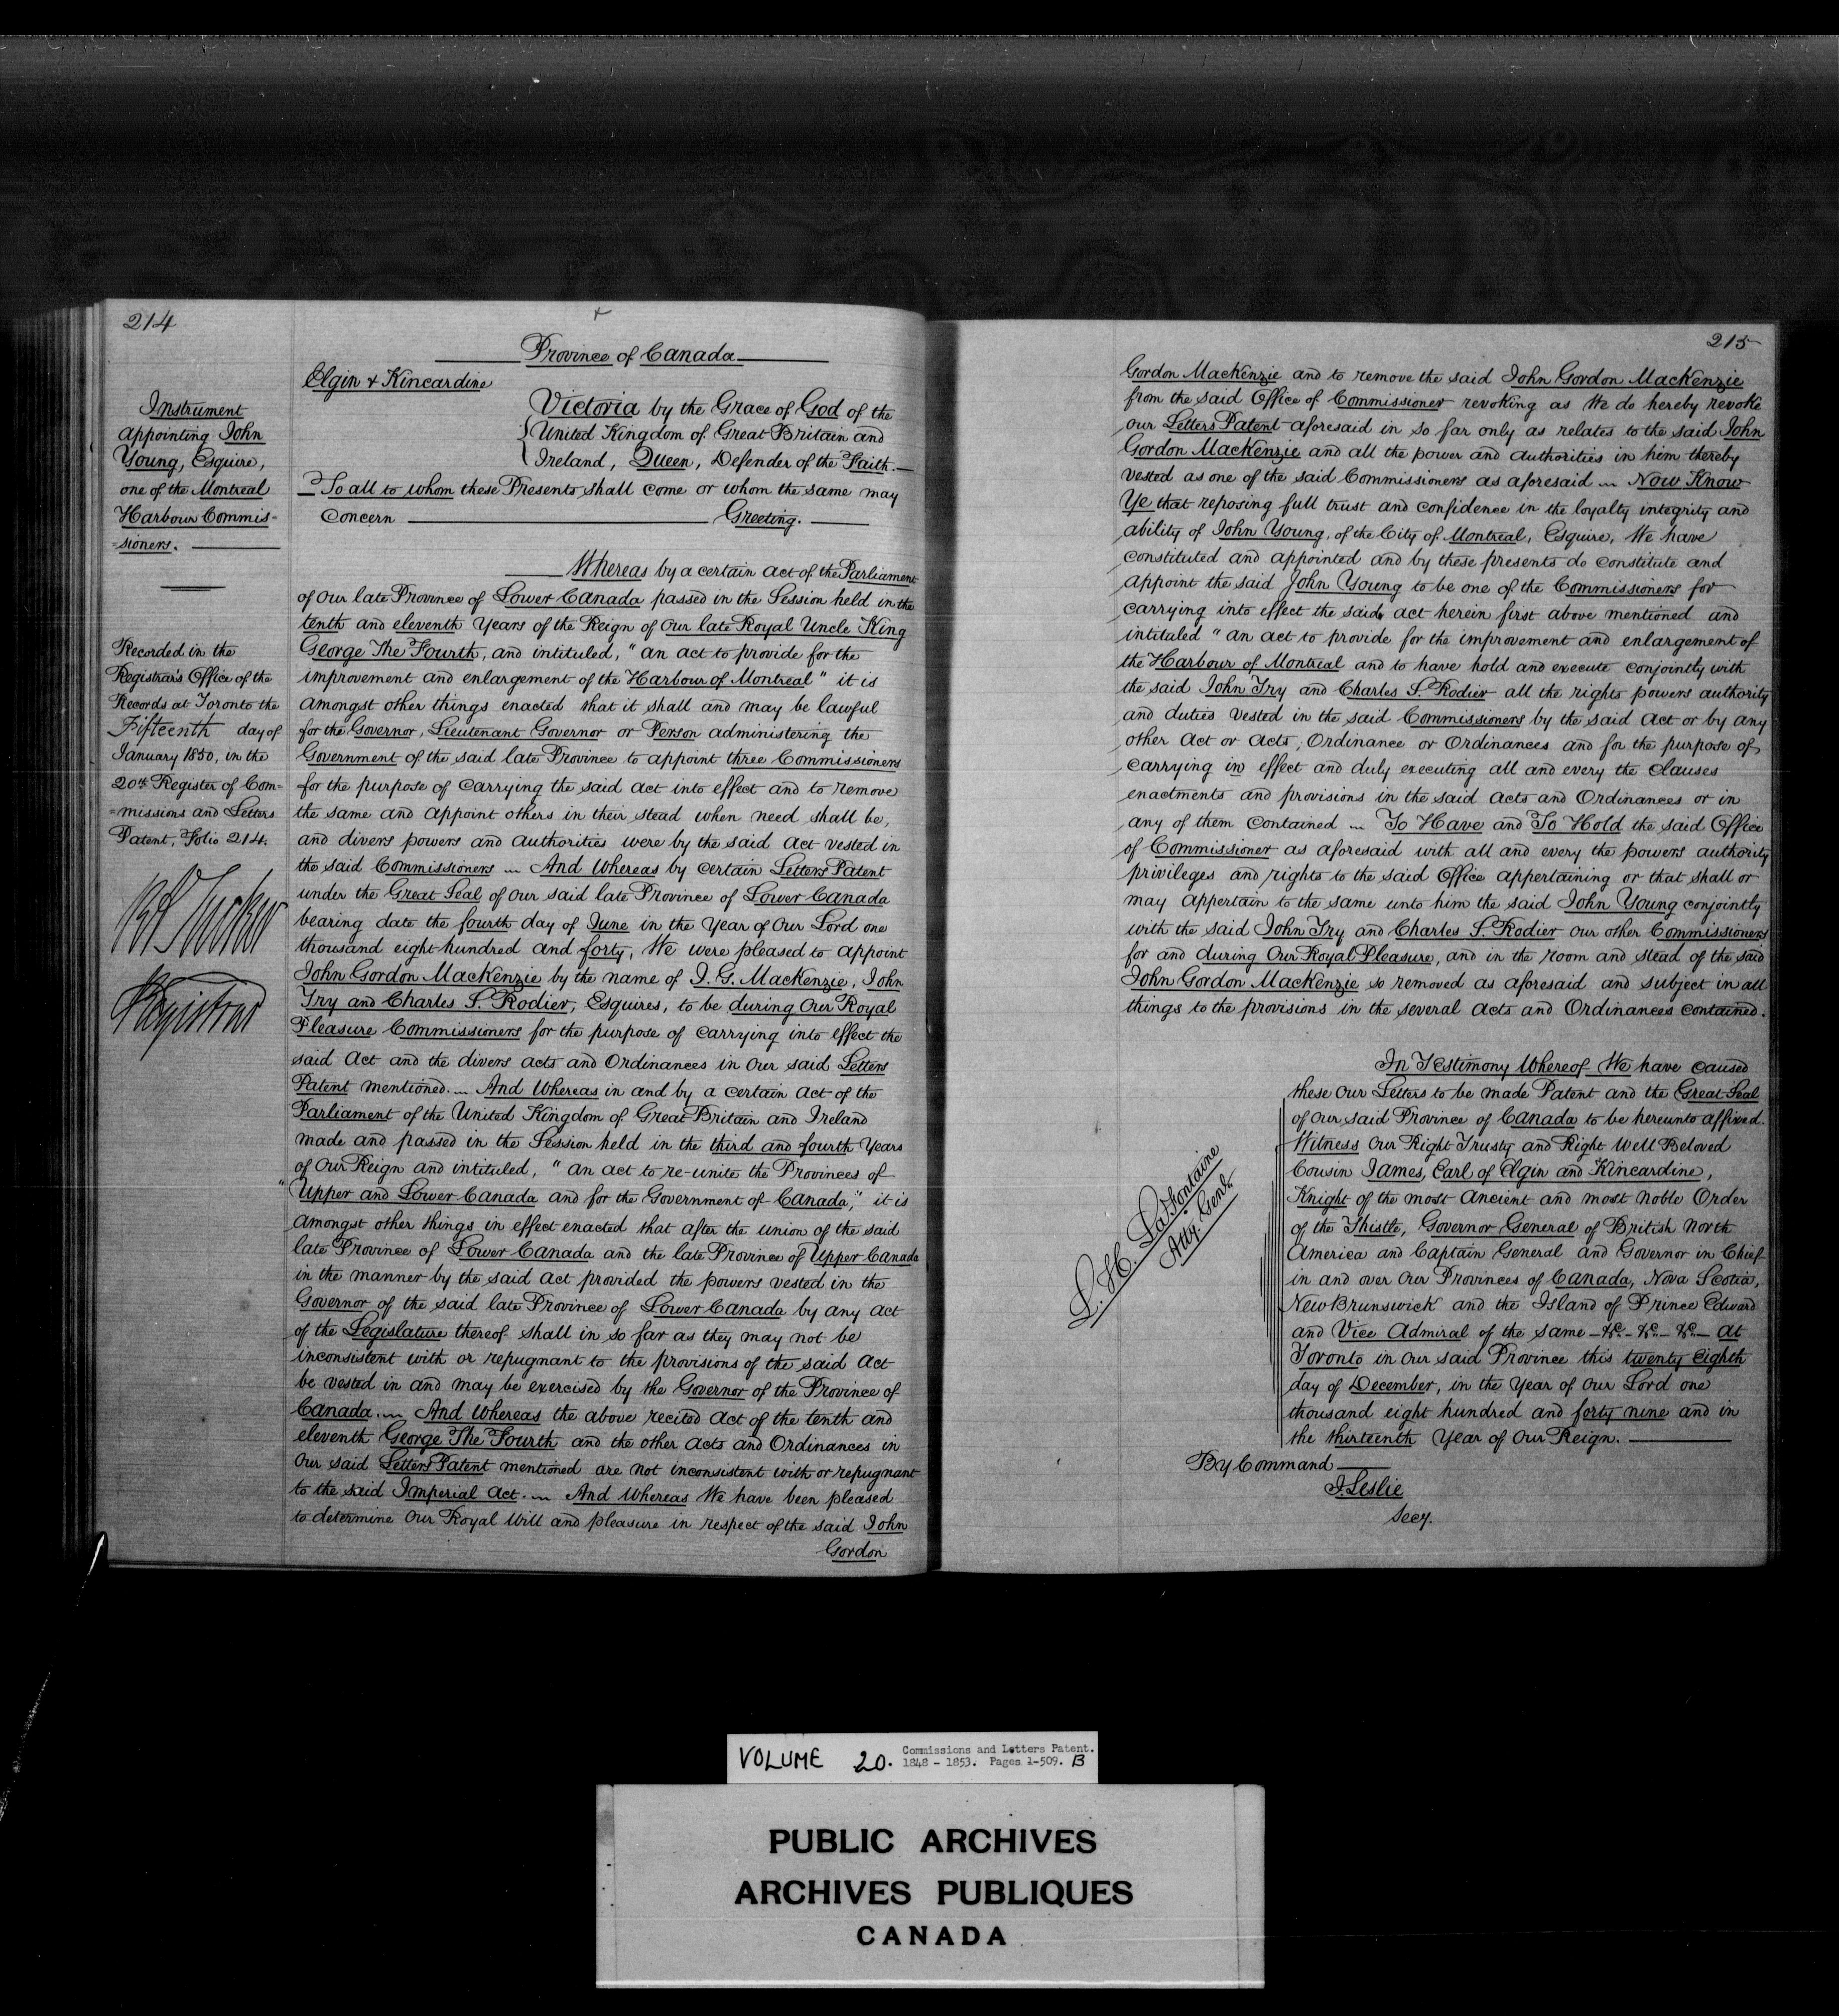 214
Province of Canada
Elgin & Kincardine
Instrument
appointing John
Young, Esquire,
one of the Montreal
Harbour Commis-
=sioners.
Recorded in the
Registrar's Office of the
Records at Toronto the
Fifteenth day of
January 1850, in the
20th Register of Com-
=missions and Letters
Patent, Folio 214.
R A Tucker
Registrar
Victoria by the Grace of God of the
United Kingdom of Great Britain and
Ireland, Queen, Defender of the Faith.
To all to whom these Presents shall come or whom the same may
Concern Greeting.
Whereas by a certain act of the Parliament
of Our late Province of Lower Canada passed in the Session held in the
tenth and eleventh Years of the Reign of Our late Royal Uncle King
George The Fourth, and intituled, "an act to provide for the
improvement and enlargement of the Harbour of Montreal" it is
amongst other things enacted that it shall and may be lawful
for the Governor, Lieutenant Governor or Person administering the
Government of the said late Province to appoint three Commissioners
for the purpose of carrying the said act into effect and to remove
the same and appoint others in their stead when need shall be,
and divers powers and authorities were by the said Act vested in
the said Commissioners And Whereas by certain Letters Patent
under the Great Seal of our said late Province of Lower Canada
bearing date the fourth day of June in the Year of Our Lord one
thousand eight hundred and forty, We were pleased to appoint
John Gordon MacKenzie by the name of J. G. MacKenzie, John
Try and Charles S. Rodier, Esquires, to be during Our Royal
Pleasure Commissioners for the purpose of carrying into effect the
said Act and the divers acts and Ordinances in Our said Letters
Patent mentioned. And Whereas in and by a certain Act of the
Parliament of the United Kingdom of Great Britain and Ireland
made and passed in the Session held in the third and fourth Years
of Our Reign and intituled, "an act to re-unite the Provinces of
"Upper and Lower Canada and for the Government of Canada," it is
amongst other things in effect enacted that after the union of the said
late Province of Lower Canada and the late Province of Upper Canada
in the manner by the said Act provided the powers vested in the
Governor of the said late Province of Lower Canada by any act
of the Legislature thereof shall in so far as they may not be
inconsistent with or repugnant to the provisions of the said Act
be vested in and may be exercised by the Governor of the Province of
Canada. And Whereas the above recited Act of the tenth and
eleventh George The Fourth and the other Acts and Ordinances in
Our said Letters Patent mentioned are not inconsistent with or repugnant
to the said Imperial Act. And Whereas We have been pleased
to determine Our Royal Will and pleasure in respect of the said John
Gordon
215
Gordon MacKenzie and to remove the said John Gordon MacKenzie
from the said Office of Commissioner revoking as We do hereby revoke
our Letters Patent aforesaid in so far only as relates to the said John
Gordon MacKenzie and all the power and authorities in him thereby
vested as one of the said Commissioners as aforesaid Now Know
Ye that reposing full trust and confidence in the loyalty integrity and
ability of John Young, of the City of Montreal, Esquire, We have
constituted and appointed and by these presents do constitute and
appoint the said John Young to be one of the Commissioners for
carrying into effect the said act herein first above mentioned and
intituled "an act to provide for the improvement and enlargement of
the Harbour of Montreal and to have hold and execute conjointly with
the said John Try and Charles S. Rodier all the rights powers authority
and duties vested in the said Commissioners by the said Act or by any
other Act or Acts, Ordinance or Ordinances and for the purpose of
carrying in effect and duly executing all and every the Clauses
enactments and provisions in the said Acts and Ordinances or in
any of them Contained To Have and To Hold the said Office
of Commissioner as aforesaid with all and every the powers authority
privileges and rights to the said Office appertaining or that shall or
may appertain to the same unto him the said John Young conjointly
with the said John Try and Charles S. Rodier our other Commissioners
for and during Our Royal Pleasure, and in the room and stead of the said
John Gordon MacKenzie so removed as aforesaid and subject in all
things to the provisions in the several Acts and Ordinances contained.
In Testimony Whereof We have caused
these Our Letters to be made Patent and the Great Seal
of Our said Province of Canada to be hereunto affixed.
Witness Our Right Trusty and Right Well Beloved
Cousin James, Earl of Elgin and Kincardine,
Knight of the most Ancient and most Noble Order
of the Thistle, Governor General of British North
America and Captain General and Governor in Chief
in and over Our Provinces of Canada, Nova Scotia,
New Brunswick and the Island of Prince Edward
and Vice Admiral of the same - &c. - &c. - &c. - At
Toronto in Our said Province this twenty eighth
day of December, in the Year of Our Lord one
thousand eight hundred and forty nine and in
the thirteenth Year of Our Reign.
L. H. LaFontaine
Atty. Genl.
By Command
J. Leslie
Secy.
VOLUME 20. Commissions and Letters Patent.
1848 - 1853. Pages 1-509. B
PUBLIC ARCHIVES
ARCHIVES PUBLIQUES
CANADA